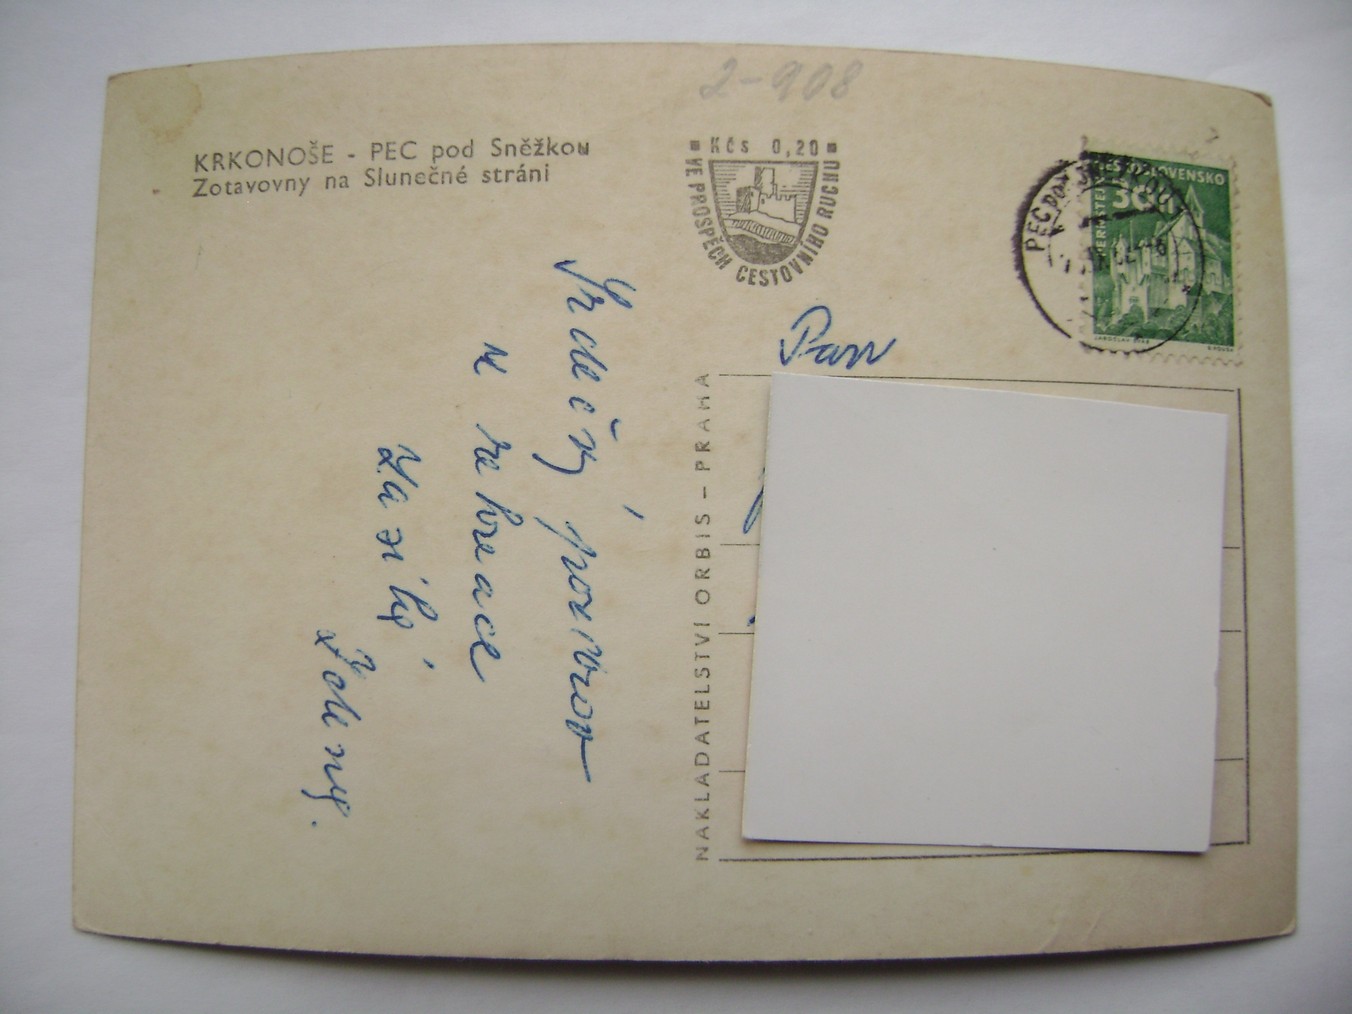 2-908
KRKONOŠE - PEC pod Sněžkou
Zotavovny na Slunečné stráni
Kčs 0,20
VE PROSPĚCH CESTOVNÍHO RUCHU
PEC POD
ČESKOSLOVENSKO
30h
JAROSLAV
Pan
NAKLADATELSTVÍ ORBIS - PRAHA
Srdečný pozdrav
z rekreace
zasílý